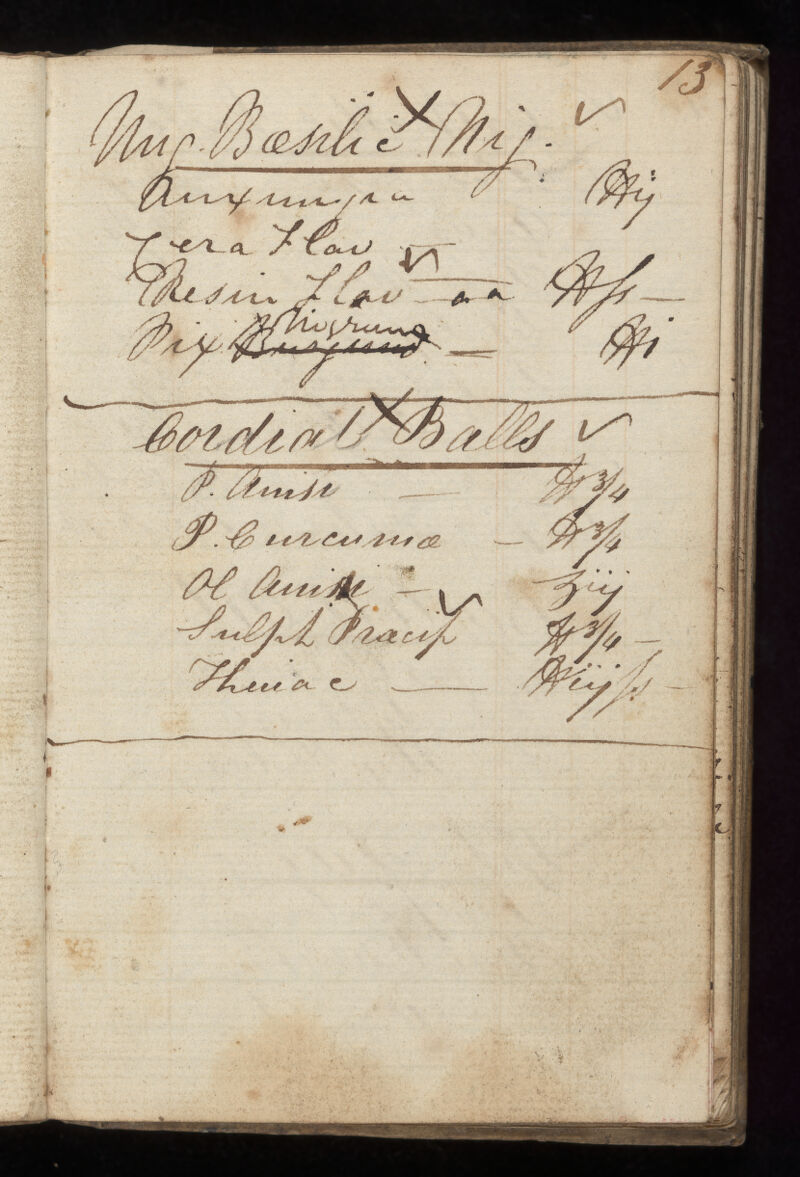 13
Ung. Basilic Nig.
Auxungia ℔ij
Cera Flav —
Resin Flav — aa ℔ss —
Nigrum
Pix Burgund — ℔i
Cordial Balls
P. Anisi — ℔ 3/4
P. Curcumæ — ℔ 3/4
Ol Anisi — ℥iij
Sulph Præcip ℔ 3/4 —
Theriac — ℔iijss —